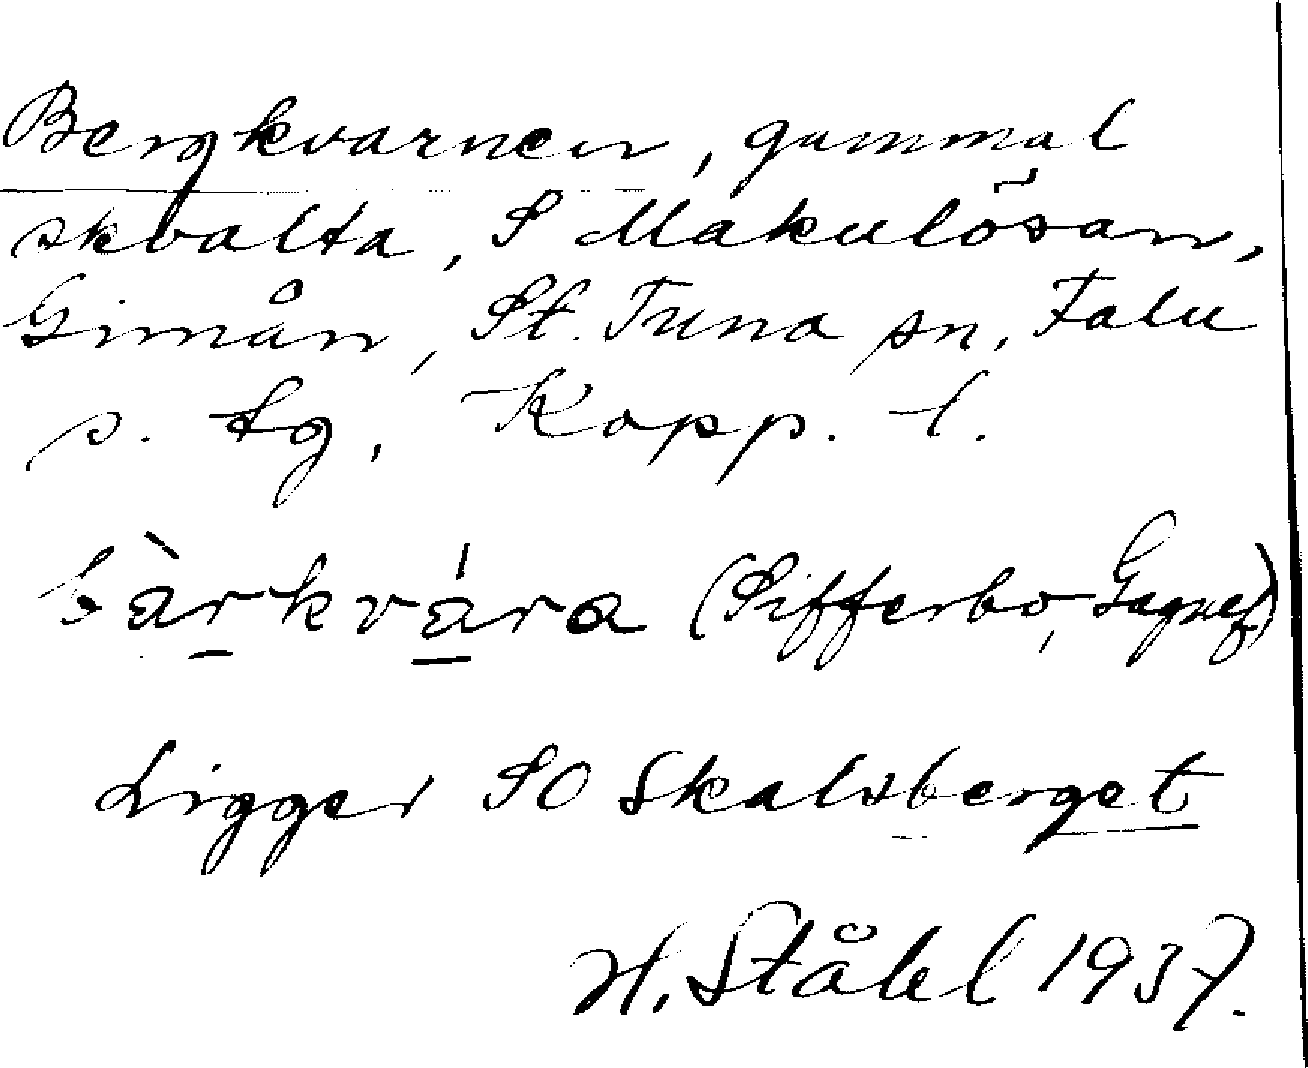 Bergkvarnen, gammal
skvalta, S Makulösan,
Gimån, St. Tuna sn, Falu
s. tg, Kopp. l.
bàrkvára (Sifferbo, Gagnef)
Ligger SO Skalsberget
H. Ståhl 1937.